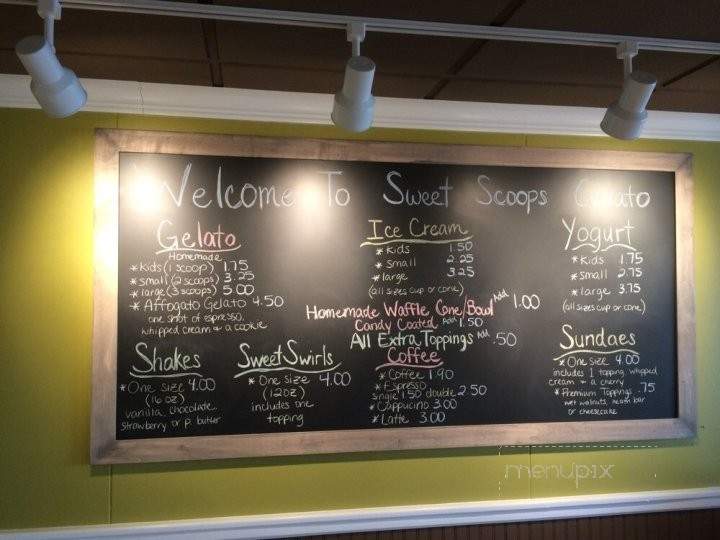 Welcome To Sweet Scoops Gelato
Gelato
Homemade
* Kids (1 scoop) 1.75
* small (2 scoops) 3.25
* large (3 scoops) 5.00
* Affogato Gelato 4.50
one shot of espresso,
whipped cream & a cookie
Ice Cream
* Kids 1.50
* small 2.25
* large 3.25
(all sizes cup or cone)
Yogurt
* Kids 1.75
* small 2.75
* large 3.75
(all sizes cup or cone)
Homemade Waffle Cone/Bowl Add 1.00
Candy Coated Add 1.50
All Extra Toppings Add .50
Shakes
* One size 4.00
(16 oz)
vanilla, chocolate,
strawberry or p. butter
Sweet Swirls
* One size 4.00
(12oz)
includes one
topping
Coffee
* Coffee 1.90
* Espresso
single 1.50 double 2.50
* Cappucino 3.00
* Latte 3.00
Sundaes
* One size 4.00
includes 1 topping, whipped
cream & a cherry
* Premium Toppings .75
wet walnuts, heath bar
or cheesecake
menupix